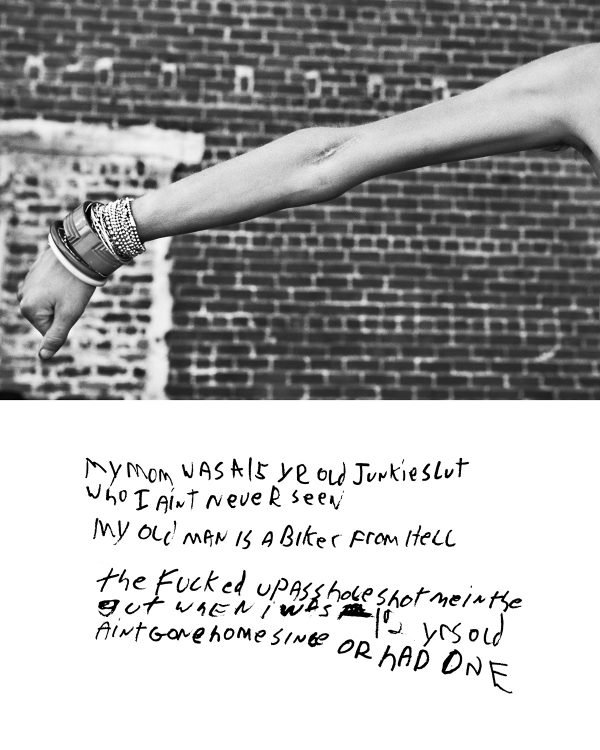 My Mom WAS A 15 YR old Junkieslut
who I Aint never seen
My old MAN IS A Biker From Hell
the Fucked UP ASShole shot me in the
gut wHEN i WAS 12 yrs old
Aint Gone home since OR hAD ONE